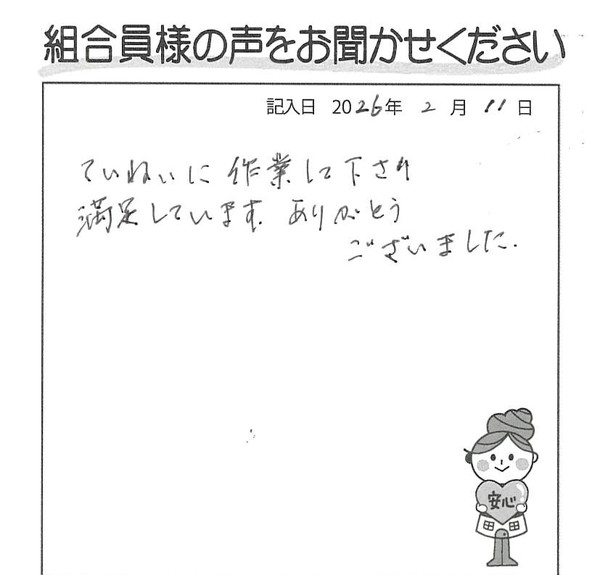 組合員様の声をお聞かせください
記入日 2026年 2月 11日
ていねいに作業して下さり
満足しています。ありがとう
ございました.
安心